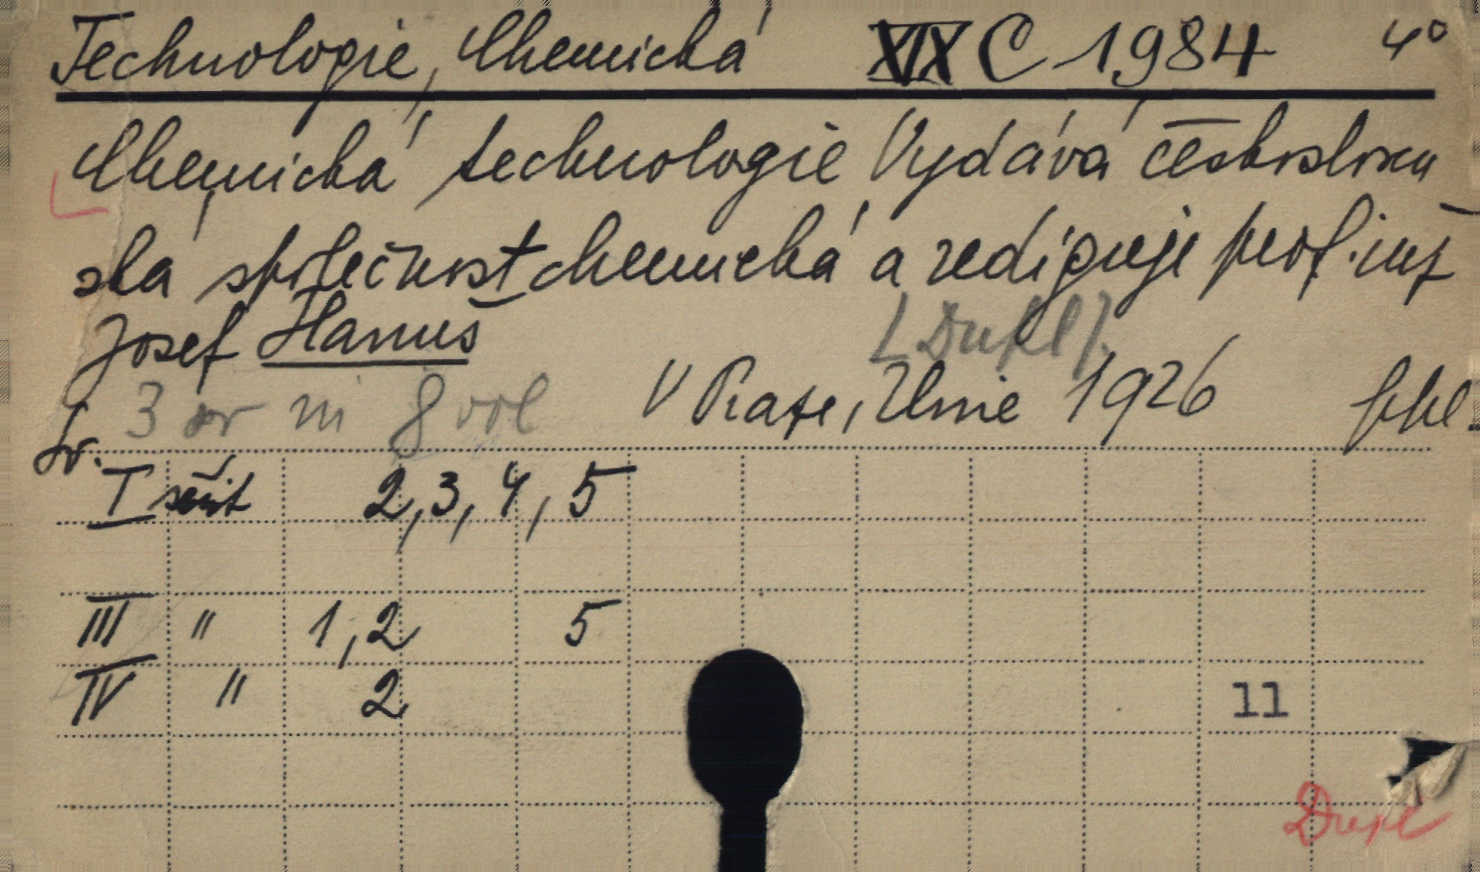 Technologie, Chemická XIX C 1984 4°
Chemická technologie Vydává českosloven
ská společnost chemická a rediguje prof. inž
Josef Hanuš
[Dupl].
3 sv in 8 vol V Praze, Unie 1926
Sv.
I sešit 2, 3, 4, 5
III " 1, 2 5
IV " 2
11
Dupl